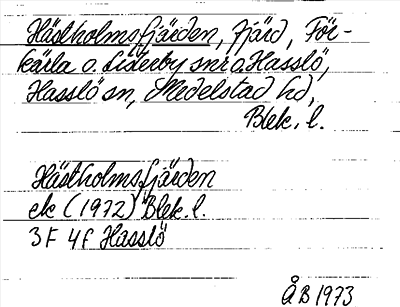 Hästholmsfjärden, fjärd, För-
kärla o. Listerby snr o. Hasslö,
Hasslö sn, Medelstad hd,
Blek. l.
Hästholmsfjärden
ek (1972) Blek. l.
3F 4f Hasslö
ÅB 1973